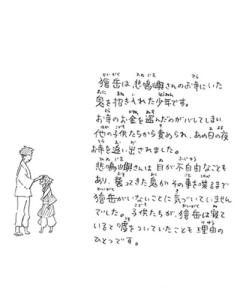 獪岳は、悲鳴嶼さんのお寺にいた
鬼を招き入れた少年です。
お寺のお金を盗んだのがバレてしまい
他の子供たちから責められ、あの日の夜
お寺を追い出されました。
悲鳴嶼さんは、目が不自由なことも
あり、襲ってきた鬼がその事を喋るまで
獪岳がいないことに気づいていません
でした。子供たちが、獪岳は寝て
いると嘘をついていたことも理由の
ひとつです。